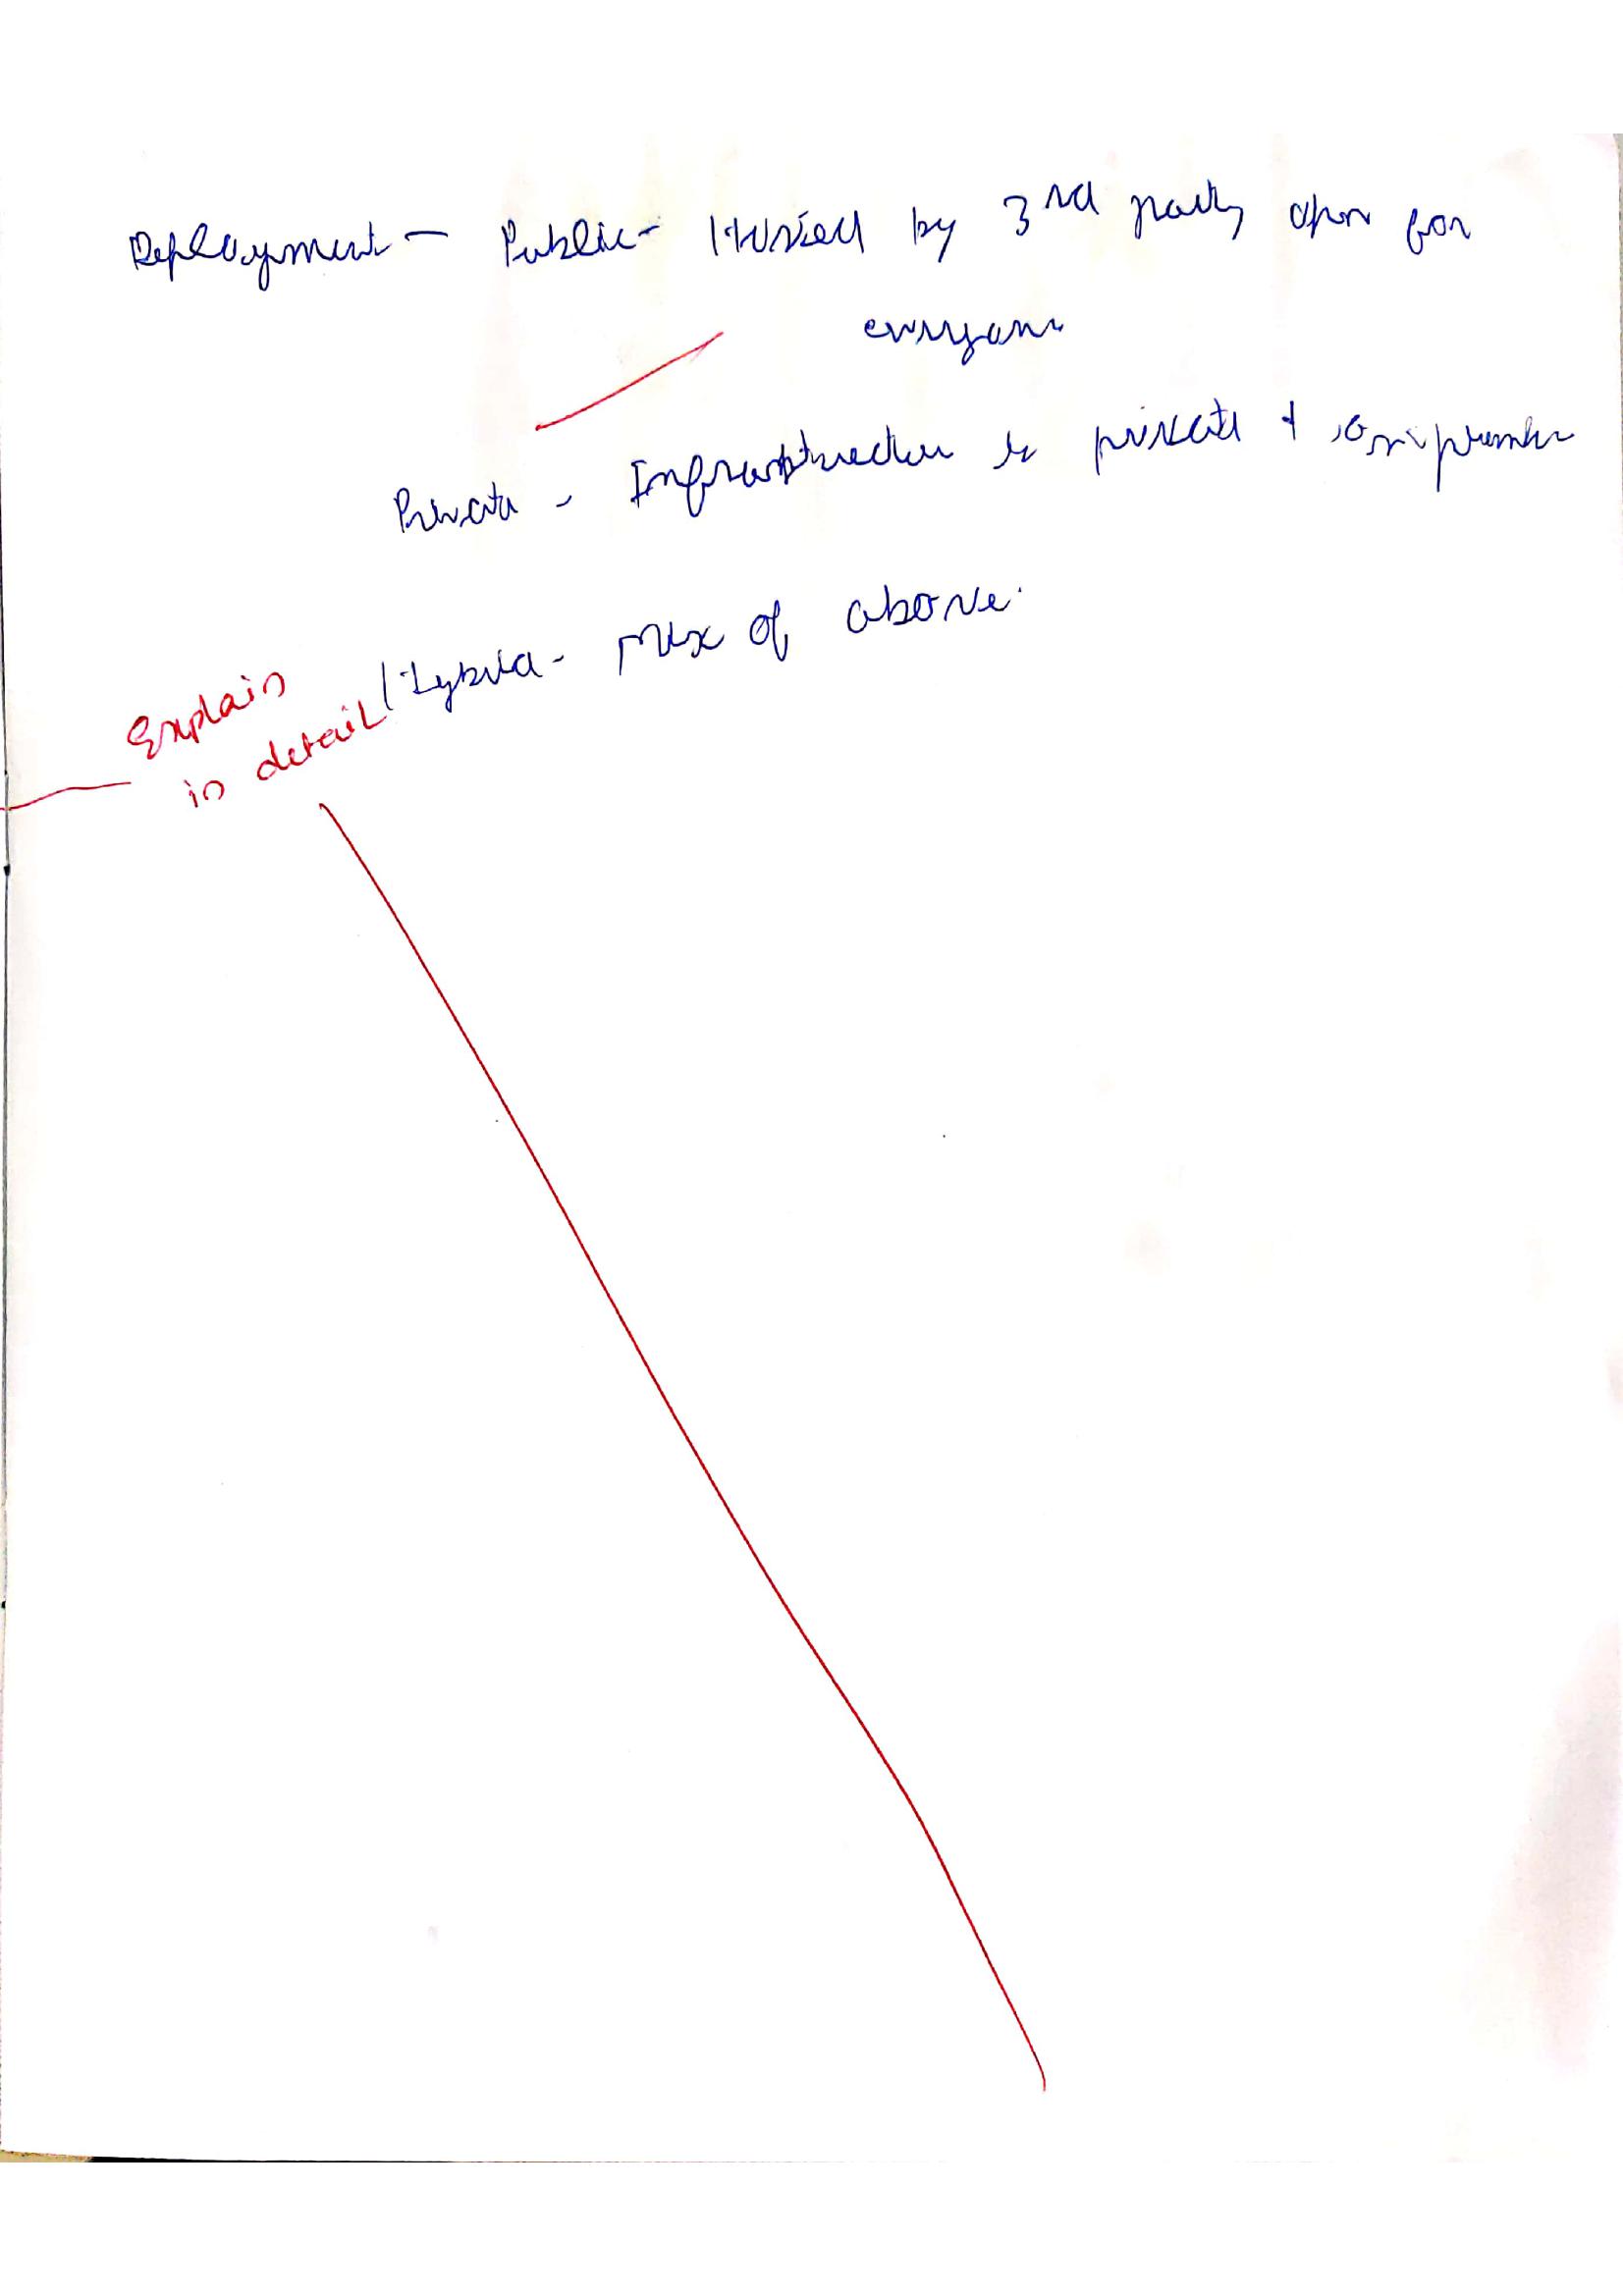 Deployment - Public - Hosted by 3rd party open for
everyone
Private - Infrastructure is private & on-premise
Hybrid - Mix of above.
Explain
in detail